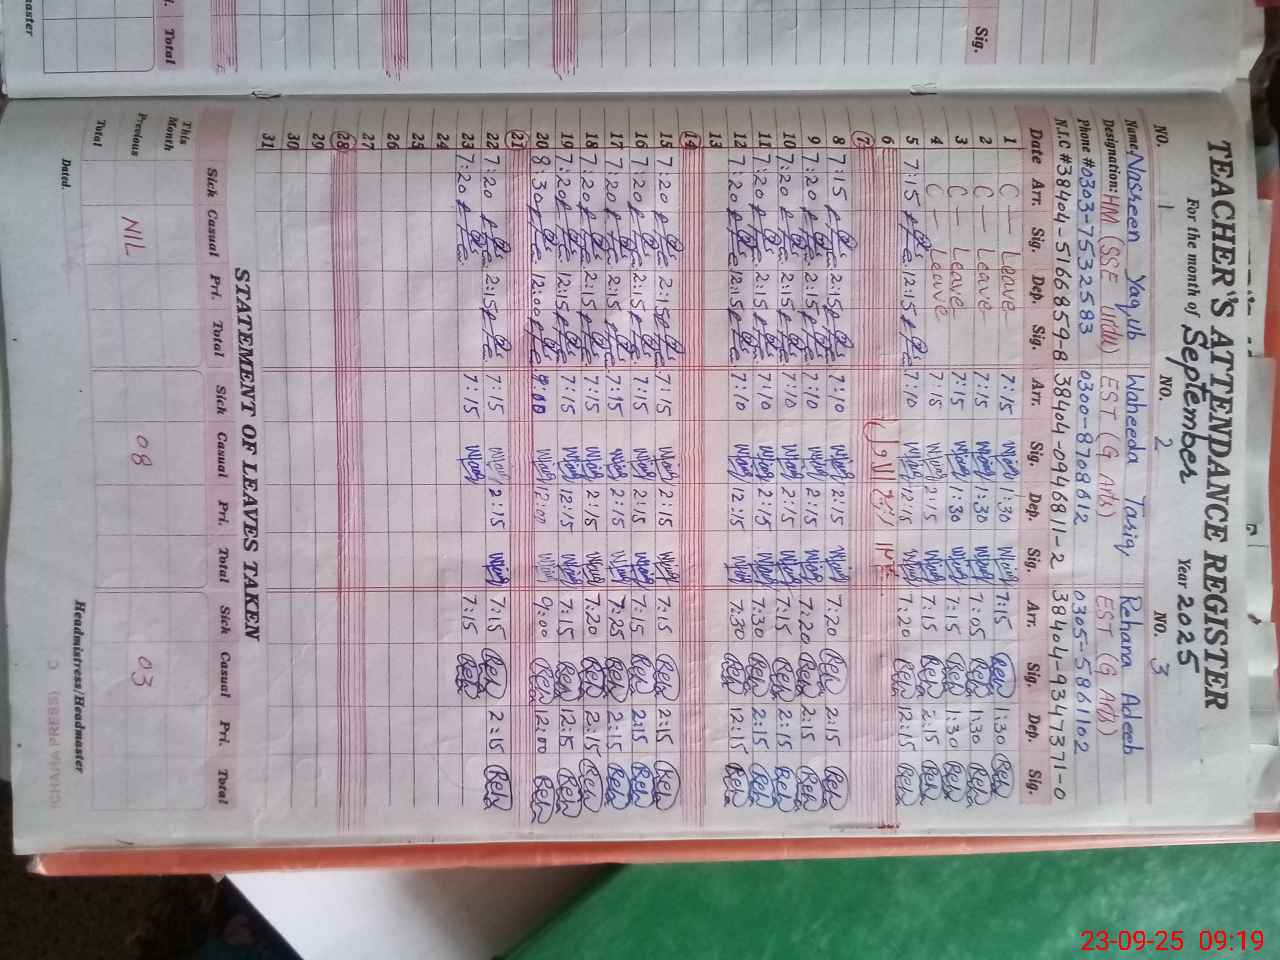 TEACHER'S ATTENDANCE REGISTER
For the month of September Year 2025
NO. 1 NO. 2 NO. 3
Name. Nosheen Yaqub Waheeda Tariq Rehana Adeeb
Designation: HM (SSE Urdu) EST (G Arts) EST (G Arts)
Phone # 0303-7532583 0300-8708612 0305-5861102
N.I.C # 38404-5166859-8 38404-0946811-2 38404-9347371-0
Date Arr. Sig. Dep. Sig. Arr. Sig. Dep. Sig. Arr. Sig. Dep. Sig.
1 C - Leave 7:15 1:30 7:15 Reh 1:30 Reh
2 C - Leave 7:15 1:30 7:05 Reh 1:30 Reh
3 C - Leave 7:15 1:30 7:15 Reh 1:30 Reh
4 C - Leave 7:15 2:15 7:15 Reh 2:15 Reh
5 7:15 12:15 7:10 12:15 7:20 Reh 12:15 Reh
6
7
8 7:15 2:15 7:10 2:15 7:20 Reh 2:15 Reh
9 7:20 2:15 7:10 2:15 7:20 Reh 2:15 Reh
10 7:20 2:15 7:10 2:15 7:15 Reh 2:15 Reh
11 7:20 2:15 7:10 2:15 7:30 Reh 2:15 Reh
12 7:20 12:15 7:10 12:15 7:30 Reh 12:15 Reh
13
14
15 7:20 2:15 7:15 2:15 7:15 Reh 2:15 Reh
16 7:20 2:15 7:15 2:15 7:15 Reh 2:15 Reh
17 7:20 2:15 7:15 2:15 7:25 Reh 2:15 Reh
18 7:20 2:15 7:15 2:15 7:20 Reh 2:15 Reh
19 7:20 12:15 7:15 12:15 7:15 Reh 12:15 Reh
20 8:30 12:00 12:00 9:00 Reh 12:00 Reh
21
22 7:20 2:15 7:15 2:15 7:15 Reh 2:15 Reh
23 7:20 7:15 7:15 Reh
24
25
26
27
28
29
30
31
STATEMENT OF LEAVES TAKEN
Sick Casual Pri. Total Sick Casual Pri. Total Sick Casual Pri. Total
This Month
Previous NIL 08 03
Total
Dated. Headmistress/Headmaster
Sig.
Total
23-09-25 09:19